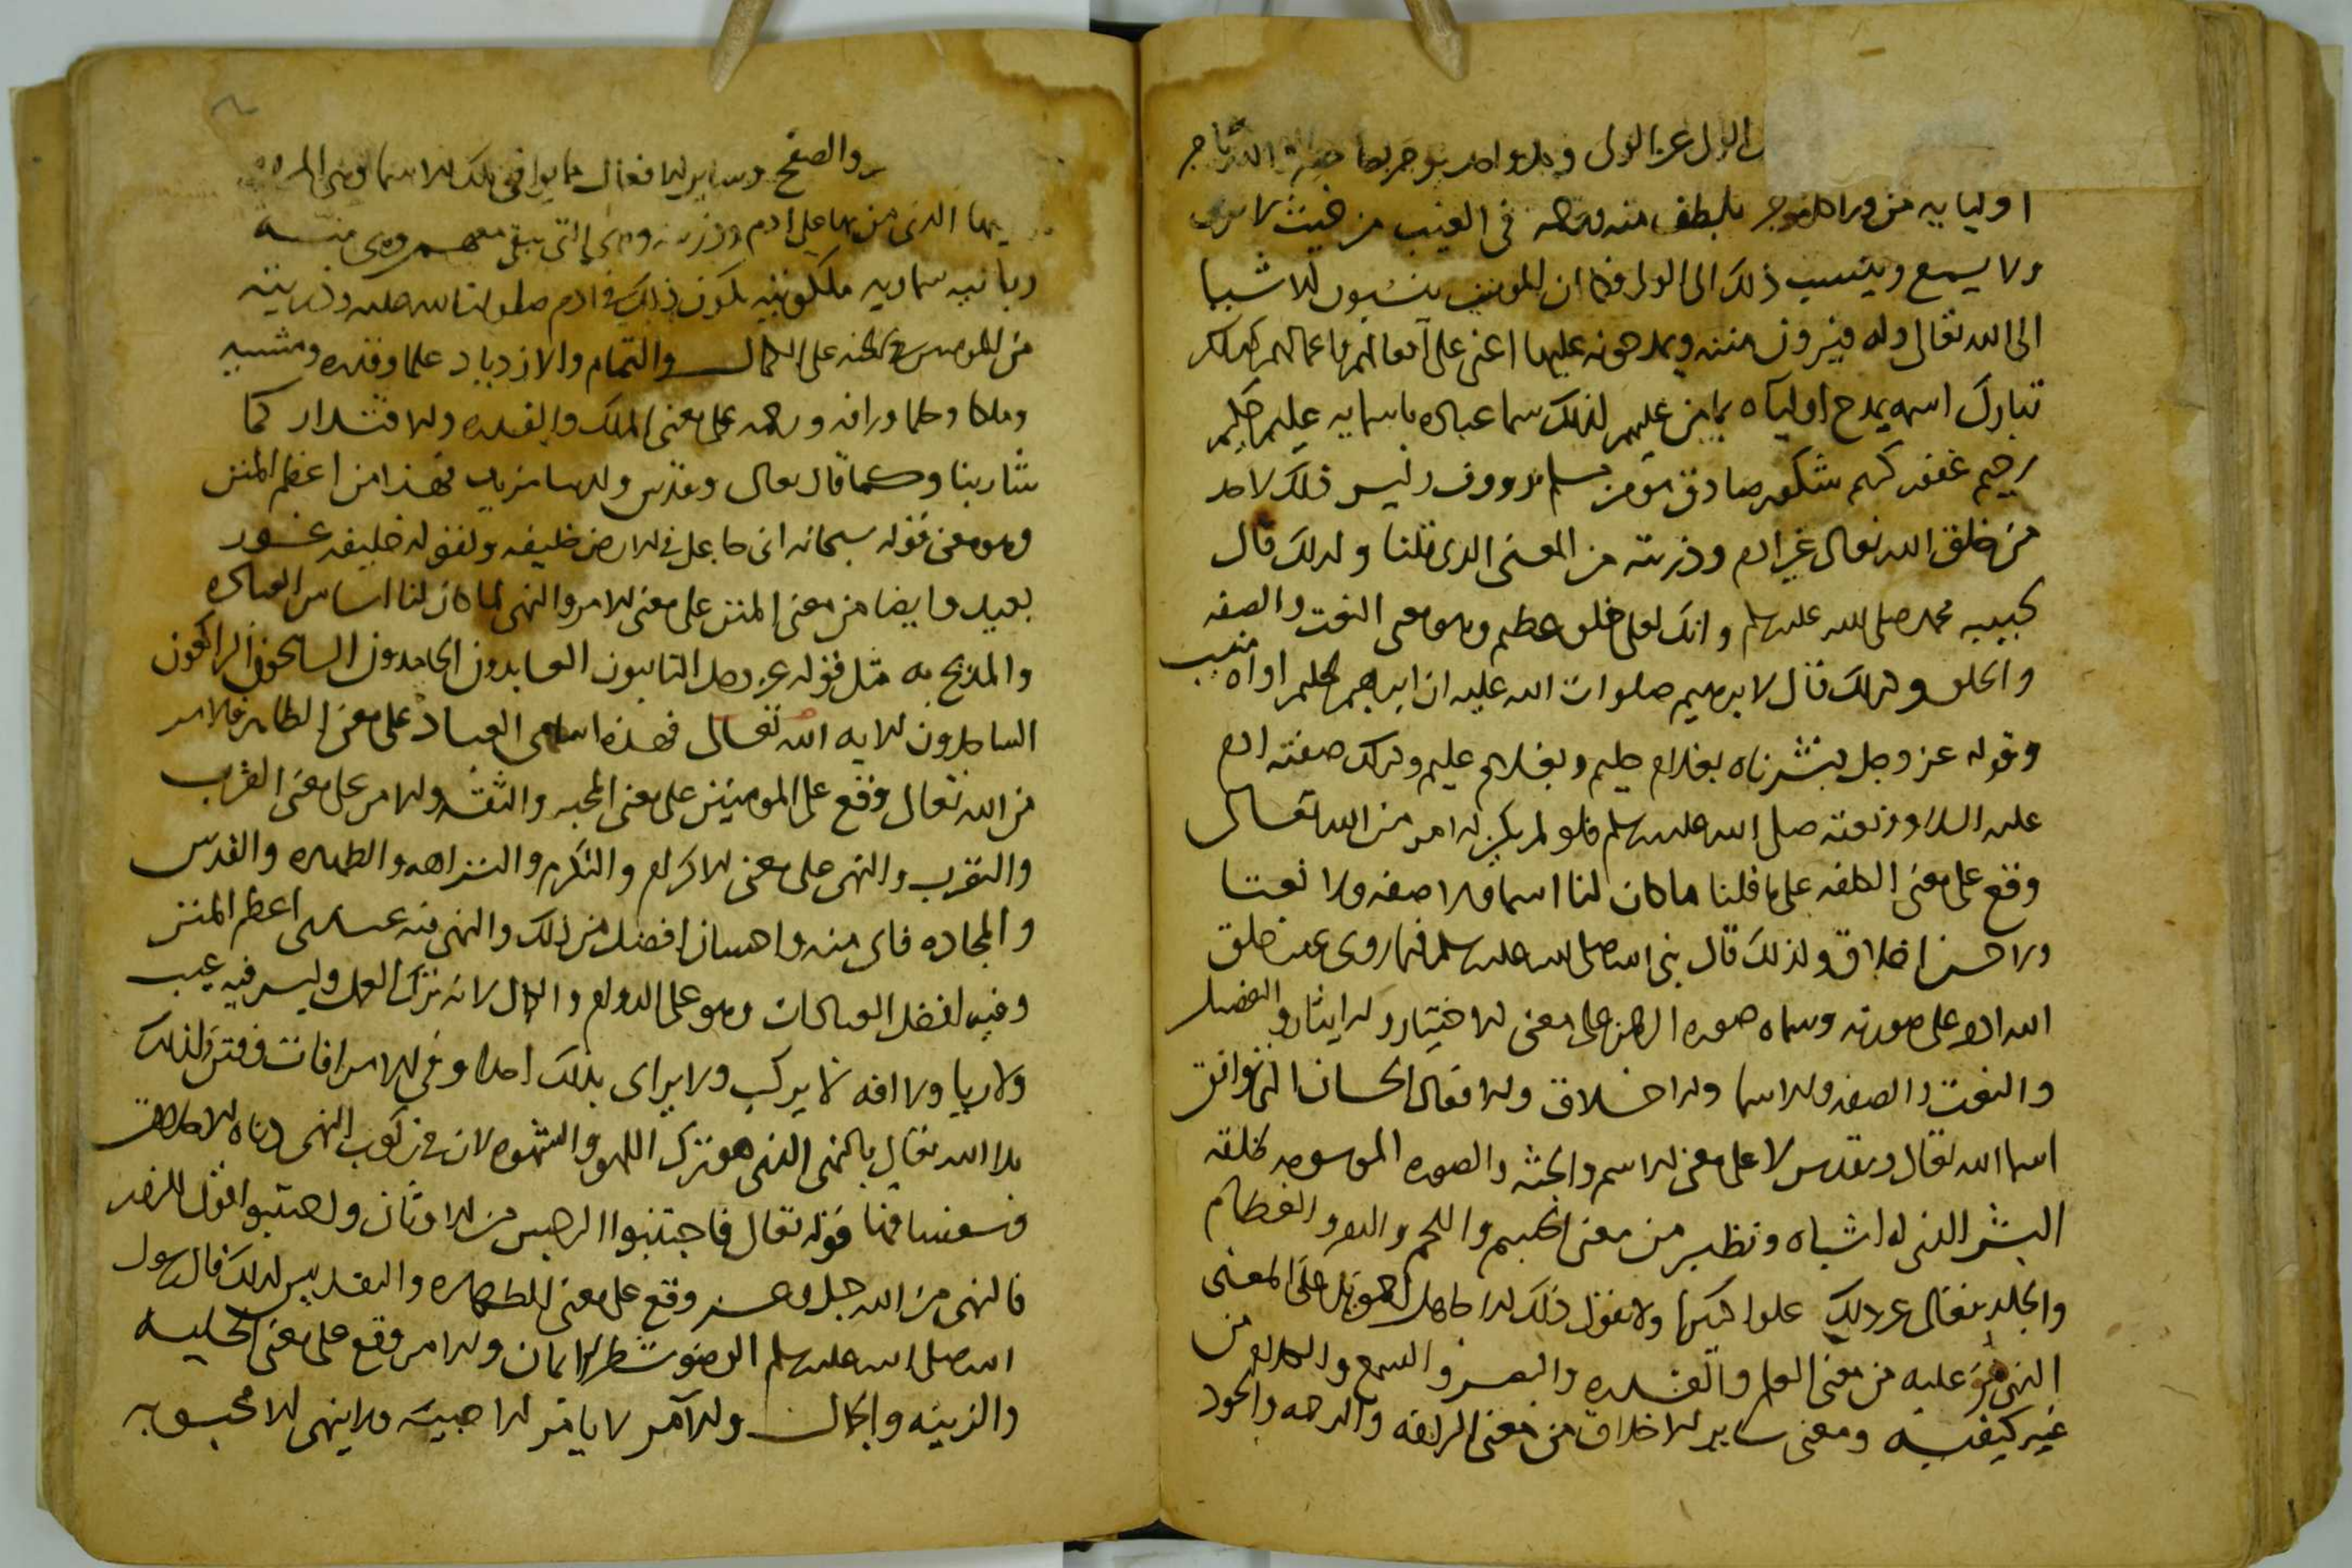 الولى عن الولى
اوليايه من ورا بلطف منه فى الغيب من حيث لا يرى
ولا يسمع وينسب ذلك الى الولى فكما ان المومنين ينسبون الاشيا
الى الله تعالى وله ويرون منته ويمدحونه عليها اعنى على افعالهم واعمالهم كذلك
تبارك اسمه يمدح اولياه بما من عليهم لذلك سما عباده باسمايه عليم حليم
رحيم غفور كريم شكور صادق مومن مسلم رووف وليس ذلك لاحد
من خلق الله تعالى غير ادم وذريته من المعنى الذى قلنا ولذلك قال
لحبيبه محمد صلى الله عليه وسلم وانك لعلى خلق عظيم وهو معنى النعت والصفه
والخلق وكذلك قال لابرهيم صلوات الله عليه ان ابرهيم لحليم اواه منيب
وقوله عز وجل بشرناه بغلام حليم وبغلام عليم وكذلك صفته ادم
عليه السلام ونعته صلى الله عليه وسلم فلو لم يكن له امر من الله تعالى
وقع على معنى على ما قلنا ما كان لنا اسما ولا صفه ولا نعتا
ولا حسن اخلاق ولذلك قال نبى الله صلى الله عليه وسلم فيما روى عنه خلق
الله ادم على صورته وسماه صوره الرحمن على معنى الاختيار والايثار والفضل
والنعت والصفه والاسما والاخلاق والافعال الحسان التى توافق
اسما الله تعالى وتقدس لا على معنى الاسم والجثه والصوره الموسومه كخلقه
البشر الذى له اشباه ونظير من معنى الجسم واللحم والدم والعظام
والجلد تعالى عن ذلك علوا كبيرا ولا يقول ذلك الا جاهل بل على المعنى
الذى من عليه من معنى العلم والقدره والبصر والسمع والكلام من
غير كيفيه ومعنى ساير الاخلاق من معنى الرافه والرحمه والجود
والصفح وساير الافعال ما يوافق تلك الاسما وهى
بها الذى من بها على ادم وذريته وهى التى تبقى معهم وهى منيه
ربانيه سماويه ملكوتيه يكون ذلك فى ادم صلوات الله عليه وذريته
من المومنين فى الجنه على الكمال والتمام والازدياد علما وقدره ومشيه
وملكا وحلما ورافه ورحمه على معنى الملك والقدره والاقتدار كما
شا ربنا وكما قال تعالى وتقدس ولدينا مزيد فهذا من اعظم المنن
وهو معنى قوله سبحانه انى جاعل فى الارض خليفه ولقوله خليفه غور
بعيد وايضا من معنى المنن على معنى الامر والنهى لما كان لنا اساس العباده
والمديح به مثل قوله عز وجل التايبون العابدون الحامدون السايحون الراكعون
الساجدون الايه الله تعالى فهذه اسامى العباد على معنى الطاهر فالامر
من الله تعالى وقع على المومنين على معنى المحبه والثقه والامر على معنى القرب
والتقرب والنهى على معنى الاكرام والتكرم والنزاهه والطهاره والقدس
والمجاده فاى منه واحسان افضل من ذلك والنهى منه عندى اعظم المنن
وفيه افضل العبادات وهو على الدوام والكمال لانه ترك العمل وليس فيه عيب
ولا ريا ولا افه لا يركب ولا يراى بذلك احدا وفى الامر افات ففتن لذلك
بلا الله تعالى بالنهى الذى هو ترك اللهو والشهوه لان فى ركوب النهى
قوله تعالى فاجتنبوا الرجس من الاوثان واجتنبوا قول الزور
فالنهى من الله جل وعز وقع على معنى الطهاره والتقديس لذلك قال رسول
الله صلى الله عليه وسلم الوضو شطر الايمان والامر وقع على معنى الحليه
والزينه والجمال والآمر لا يامر الا حبيبه ولا ينهى الا محبوبه